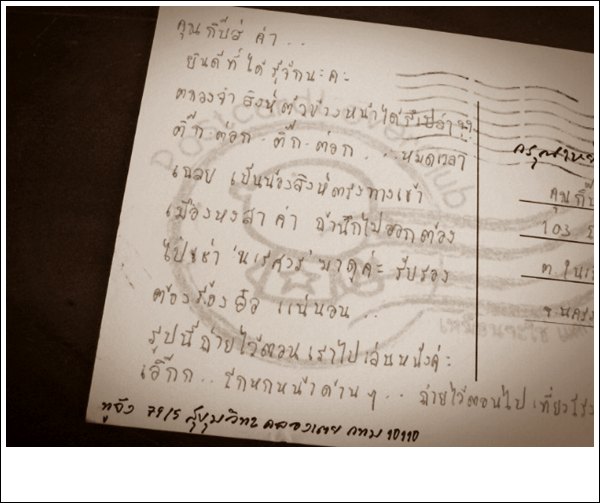 คุณกิ๊ปส์ ค่า . . .
ยินดีที่ได้รู้จักนะคะ
ตกลงจำ สิงห์ตัวข้างหน้าได้รึเปล่าน้า
ติ๊ก-ต่อก - ติ๊ก-ต่อก . . . หมดเวลา
เฉลย เป็นน้องสิงห์ตรงทางเข้า
เมืองหงสา ค่า ถ้านึกไม่ออกต้อง
ไปเช่า 'นเรศวร' มาดูค่ะ รับรอง
ต้องร้องอ๋อ แน่นอน . .
รูปนี้ถ่ายไว้ตอนเราไปเล่นหนังค่ะ
เอิ๊กก . . . โกหกหน้าด้านๆ . . . ถ่ายไว้ตอนไปเที่ยว
ทูจัง 79/5 สุขุมวิท คลองเตย กทม 10110
กรุณา
คุณกิ๊ป
103
ต.ในเ
จ.นคร
postcard
club
เหมือนจะใช่